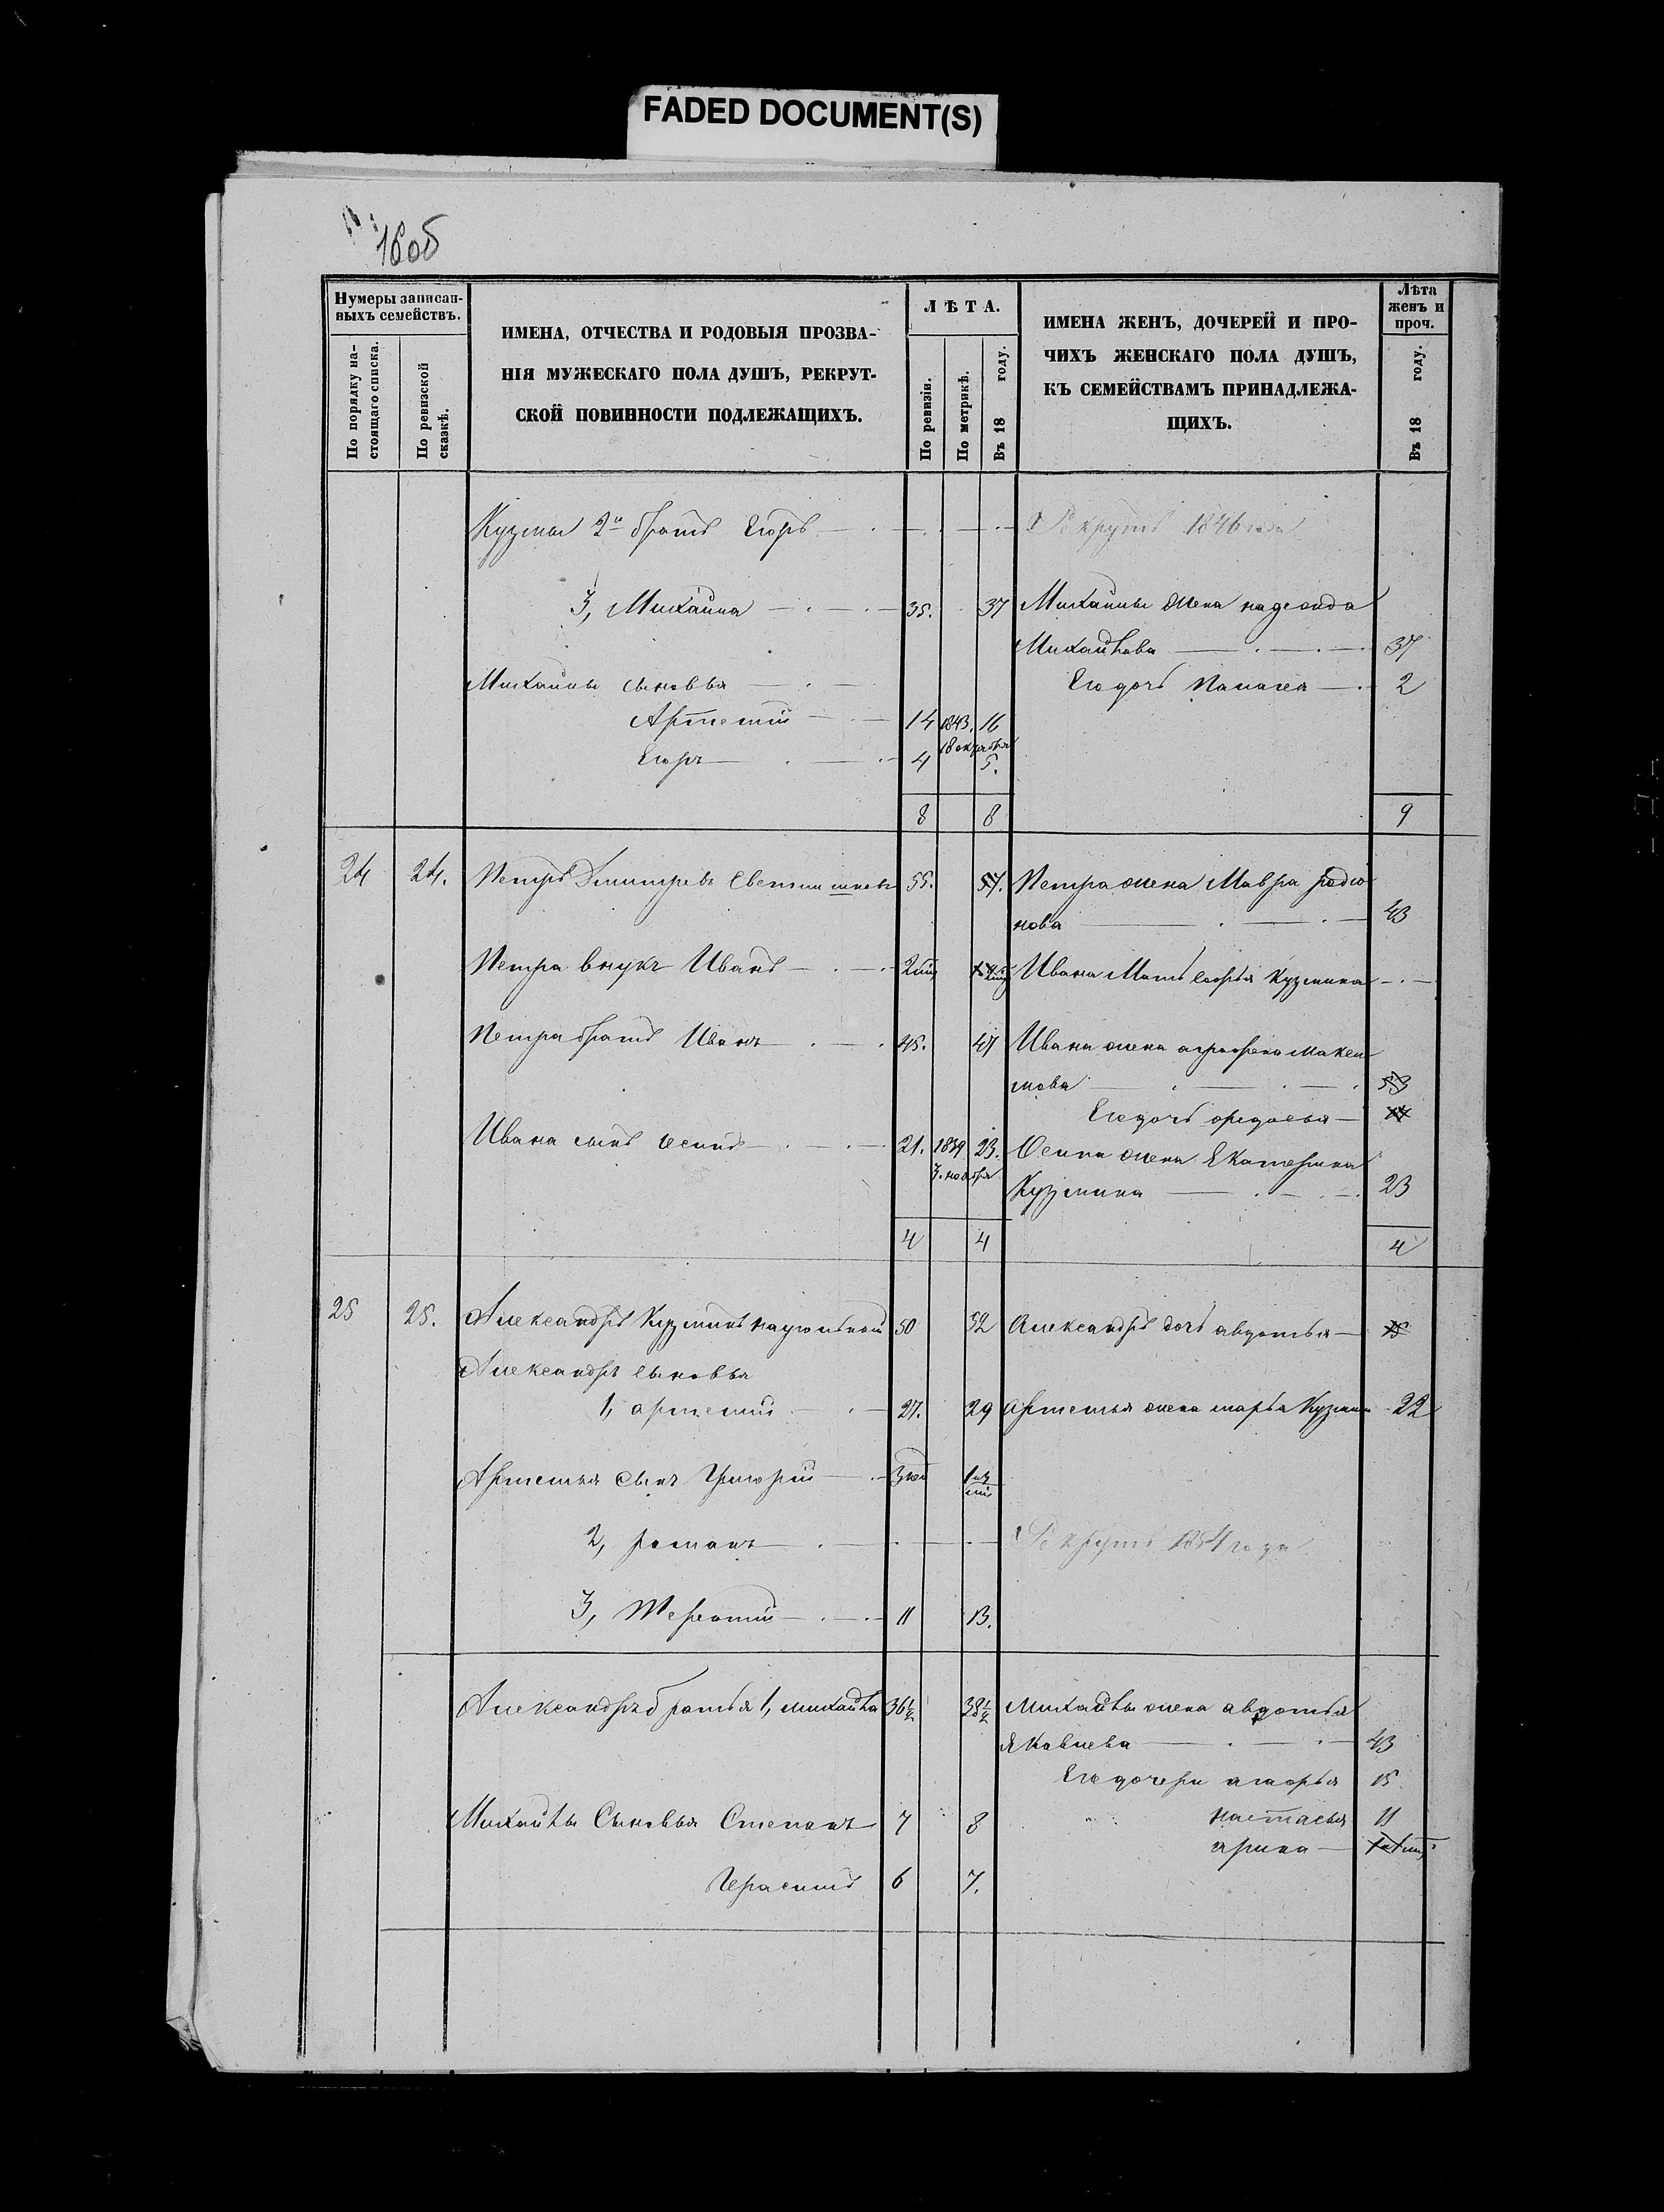 FADED DOCUMENT(S)
Нумеры записан-
ныхъ семействъ.
По порядку на-
стоящаго списка.
По ревизской
сказкѣ.
ИМЕНА, ОТЧЕСТВА И РОДОВЫЯ ПРОЗВА-
НІЯ МУЖЕСКАГО ПОЛА ДУШЪ, РЕКРУТ-
СКОЙ ПОВИННОСТИ ПОДЛЕЖАЩИХЪ.
ЛѢТА.
По ревизіи.
По метрикѣ.
Въ 18 году.
ИМЕНА ЖЕНЪ, ДОЧЕРЕЙ И ПРО-
ЧИХЪ ЖЕНСКАГО ПОЛА ДУШЪ,
КЪ СЕМЕЙСТВАМЪ ПРИНАДЛЕЖА-
ЩИХЪ.
Лѣта
женъ и
проч.
Въ 18 году.
Кузмы 2й братъ Егоръ Рекрутъ 1846 года
3, Михайла 35. 37 Михайлы жена
Михайлова 37
Михайлы сыновья Его дочь 2
Артемій 14 1843. 16
18 октября
Егоръ 4 5.
8 8 9
24 24. Петръ Дмитревъ 55. 57. Петра жена Мавра родіо
нова 43
Петра внукъ Иванъ Ивана Мать Кузмина
Петра братъ Иванъ 45. 47 Ивана жена макси
мова 53
Его дочь
Ивана сынъ осипъ 21. 1839 23. Осипа жена Екатерина
3. ноября
Кузмина 23
4 4 4
25 25. Александръ Кузминъ 50 52 Александръ дочь авдотья
Александръ сыновья
1, артемій 27. 29 артемья жена марья Кузмин 22
Артемья сынъ Григорій
2, романъ Рекрутъ 1854 года
3, Терентій 11 13.
Александръ братья 1, михайла 36½ 38½ Михайлы жена авдотья
Яковлева 43
Его дочери 15
Михайлы Сыновья Степанъ 7 8 настасья 11
арина
Герасимъ 6 7.